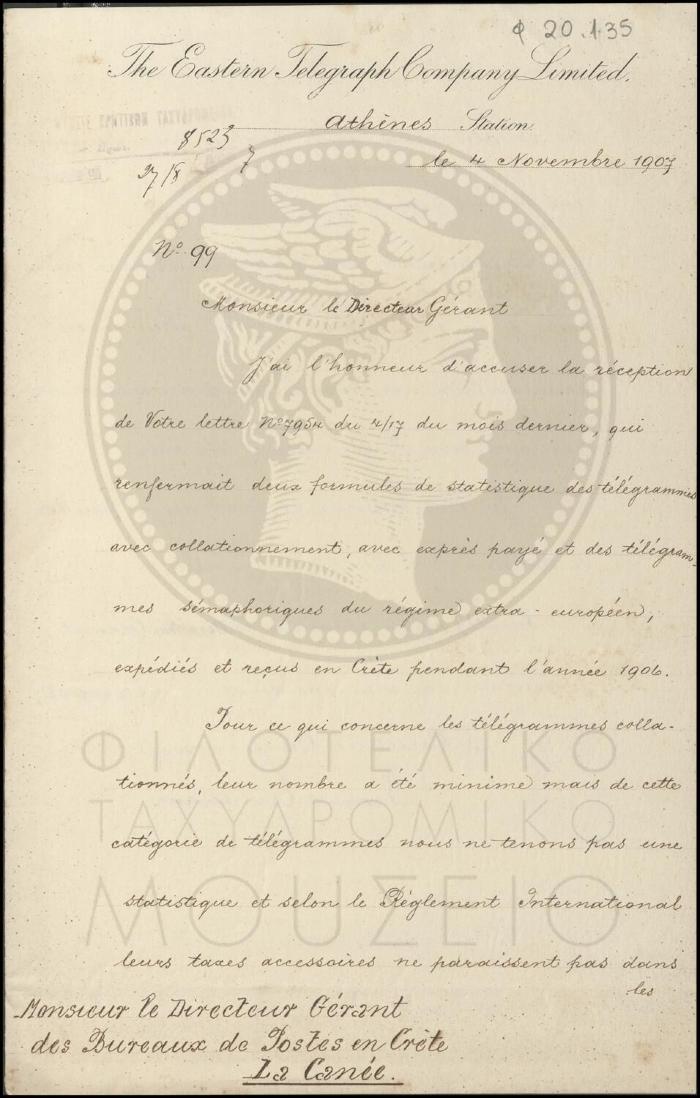 Φ 20.1.35
The Eastern Telegraph Company Limited.
Athènes Station
le 4 Novembre 1907
8523
27/8 7
No 99
Monsieur le Directeur Gérant
J'ai l'honneur d'accuser la réception
de Votre lettre No 7954 du 4/17 du mois dernier, qui
renfermait deux formules de statistique des télégrammes
avec collationnement, avec exprès payé et des télégram-
mes sémaphoriques du régime extra-européen,
expédiés et reçus en Crète pendant l'année 1906.
Pour ce qui concerne les télégrammes colla-
tionnés, leur nombre a été minime mais de cette
catégorie de télégrammes nous ne tenons pas une
statistique et selon le Règlement International
leurs taxes accessoires ne paraissent pas dans
les
Monsieur le Directeur Gérant
des Bureaux de Postes en Crète
La Canée.
ΦΙΛΟΤΕΛΙΚΟ
ΤΑΧΥΔΡΟΜΙΚΟ
ΜΟΥΣΕΙΟ